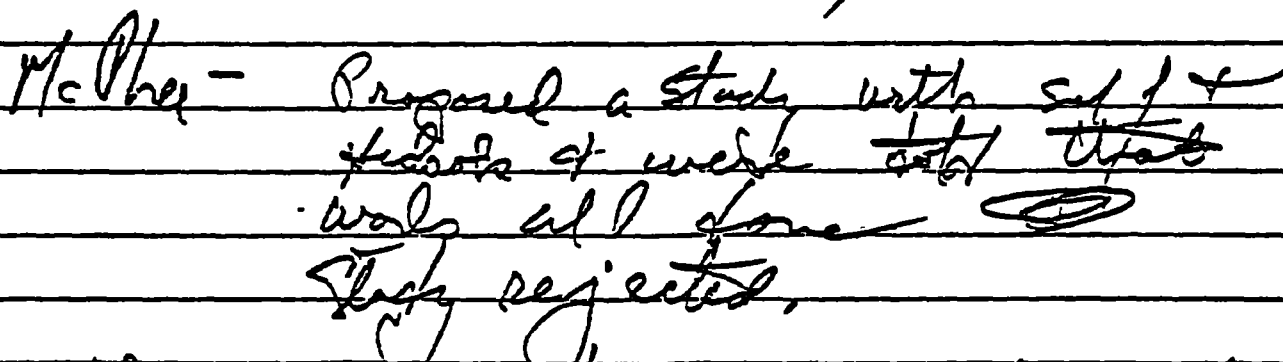 McPhee - Proposed a study with self +
& were told that
work all done
Study rejected.